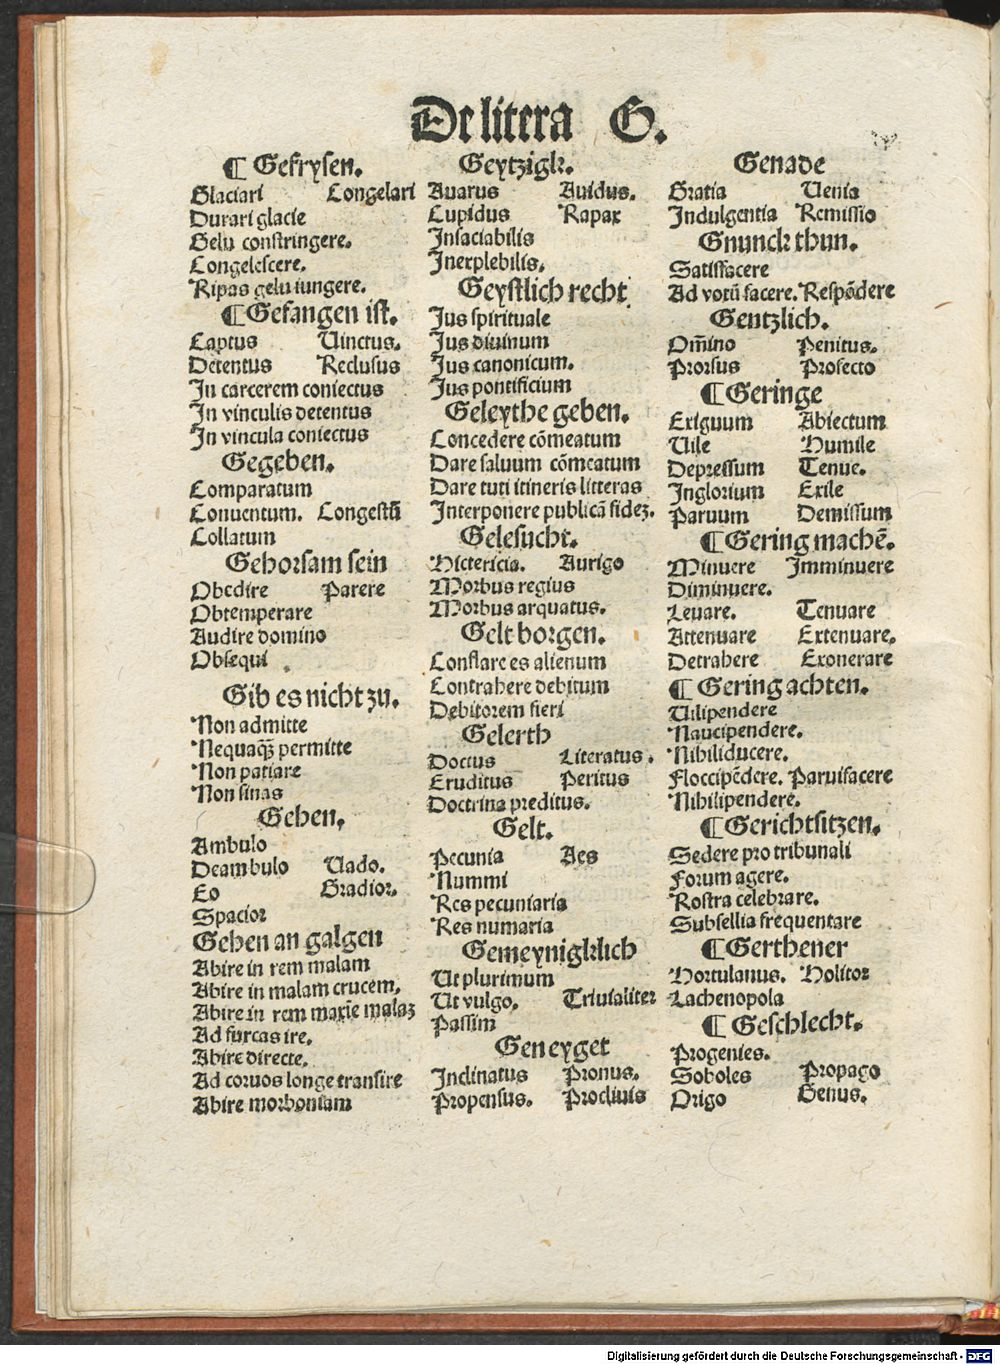 De litera G.
¶ Gefrysen.
Glaciari Congelari
Durari glacie
Gelu constringere.
Congelescere.
Ripas gelu iungere.
¶ Gefangen ist.
Captus Uinctus.
Detentus Reclusus
In carcerem coniectus
In vinculis detentus
In vincula coniectus
Gegeben.
Comparatum
Conuentum. Congestũ
Collatum
Gehorsam sein
Obedire Parere
Obtemperare
Audire domino
Obsequi
Gib es nicht zu.
Non admitte
Nequaqꝫ permitte
Non patiare
Non sinas
Gehen.
Ambulo
Deambulo Uado.
Eo Gradior.
Spacior
Gehen an galgen
Abire in rem malam
Abire in malam crucem.
Abire in rem maxie malaꝫ
Ad furcas ire.
Abire directe.
Ad coruos longe transire
Abire morboniam
Geytzigk.
Auarus Auidus.
Cupidus Rapax
Insaciabilis
Inexplebilis.
Geystlich recht
Jus spirituale
Jus diuinum
Jus canonicum.
Jus pontificium
Geleythe geben.
Concedere cõmeatum
Dare saluum cõmeatum
Dare tuti itineris litteras
Interponere publicã fideꝫ.
Gelesucht.
Hictericia. Aurigo
Morbus regius
Morbus arquatus.
Gelt borgen.
Conflare es alienum
Contrahere debitum
Debitorem fieri
Gelerth
Doctus Literatus.
Eruditus Peritus
Doctrina preditus.
Gelt.
Pecunia Aes
Nummi
Res pecuniaria
Res numaria
Gemeynigklich
Ut plurimum
Ut vulgo. Triuialiter
Passim
Geneyget
Inclinatus Pronus.
Propensus. Procliuis
Genade
Gratia Uenia
Indulgentia Remissio
Gnunck thun.
Satisfacere
Ad votũ facere. Respõdere
Gentzlich.
Om̃ino Penitus.
Prorsus Profecto
¶ Geringe
Exiguum Abiectum
Uile Humile
Depressum Tenue.
Inglorium Exile
Paruum Demissum
¶ Gering machẽ.
Minuere Imminuere
Diminuere.
Leuare. Tenuare
Attenuare Extenuare.
Detrahere Exonerare
¶ Gering achten.
Uilipendere
Naucipendere.
Nihiliducere.
Floccipẽdere. Paruifacere
Nihilipendere.
¶ Gericht sitzen.
Sedere pro tribunali
Forum agere.
Rostra celebrare.
Subsellia frequentare
¶ Gerthener
Hortulanus. Holitor
Lachenopola
¶ Geschlecht.
Progenies.
Soboles Propago
Origo Genus.
Digitalisierung gefördert durch die Deutsche Forschungsgemeinschaft - DFG